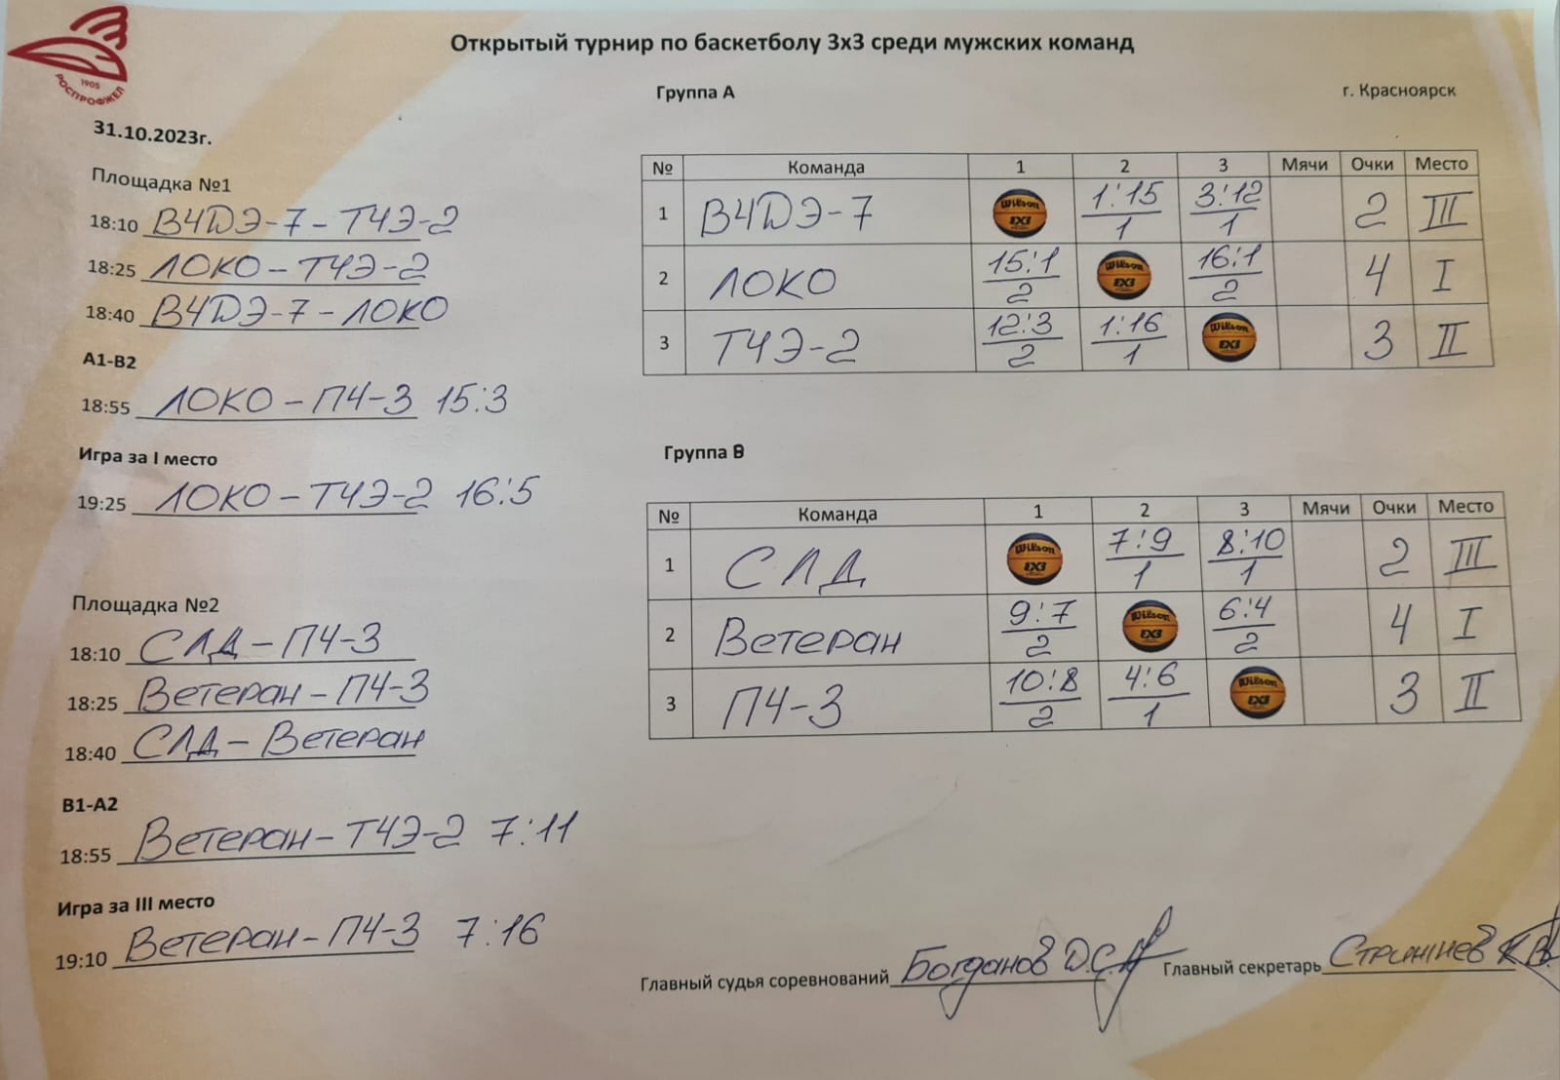 Открытый турнир по баскетболу 3х3 среди мужских команд
1905
РОСПРОФЖЕЛ
Группа А
г. Красноярск
31.10.2023г.
Площадка №1
18:10 ВЧДЭ-7 - ТЧЭ-2
18:25 ЛОКО - ТЧЭ-2
18:40 ВЧДЭ-7 - ЛОКО
А1-В2
18:55 ЛОКО - ПЧ-3 15:3
Игра за I место
19:25 ЛОКО - ТЧЭ-2 16:5
Площадка №2
18:10 СЛД - ПЧ-3
18:25 Ветеран - ПЧ-3
18:40 СЛД - Ветеран
В1-А2
18:55 Ветеран - ТЧЭ-2 7:11
Игра за III место
19:10 Ветеран - ПЧ-3 7:16
№ Команда 1 2 3 Мячи Очки Место
1 ВЧДЭ-7 Wilson 3X3 1:15 1 3:12 1 2 III
2 ЛОКО 15:1 2 Wilson 3X3 16:1 2 4 I
3 ТЧЭ-2 12:3 2 1:16 1 Wilson 3X3 3 II
Группа В
№ Команда 1 2 3 Мячи Очки Место
1 СЛД Wilson 3X3 7:9 1 8:10 1 2 III
2 Ветеран 9:7 2 Wilson 3X3 6:4 2 4 I
3 ПЧ-3 10:8 2 4:6 1 Wilson 3X3 3 II
Главный судья соревнований Богданов Д.С.
Главный секретарь